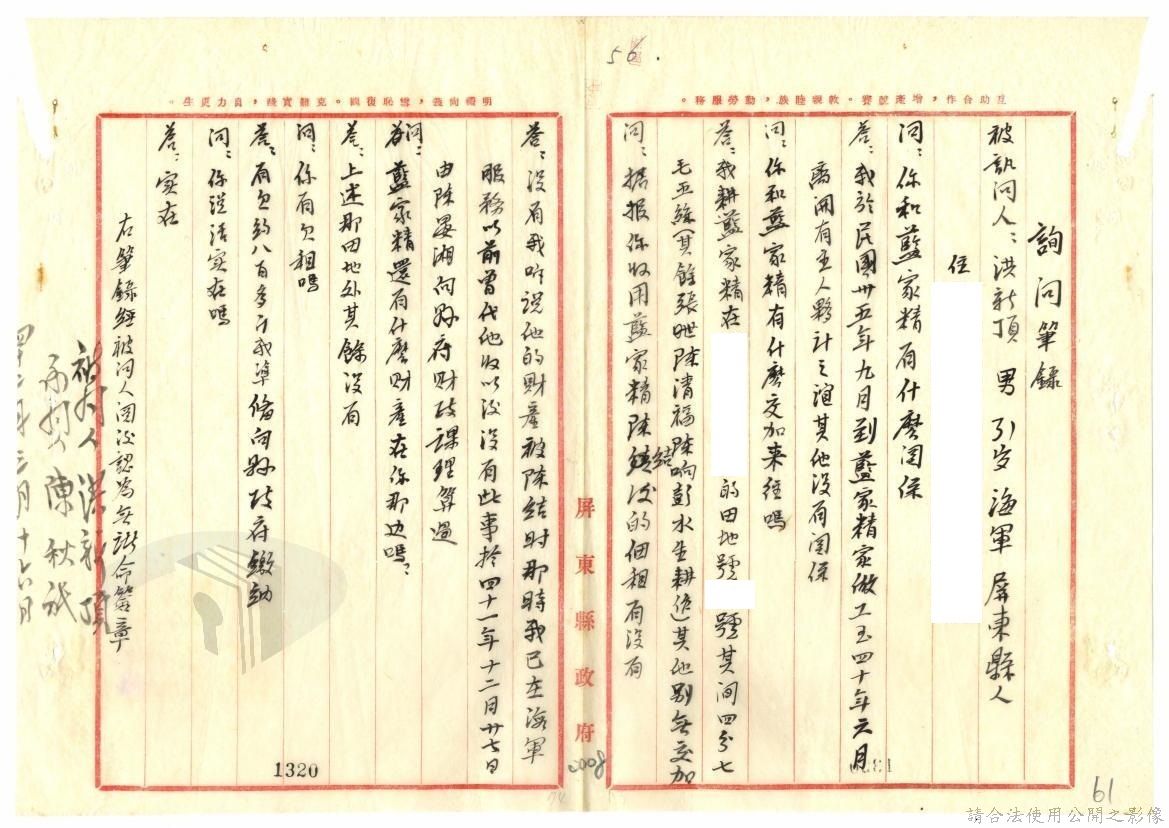 56
互助合作，增產競賽。敦親睦族，勤勞服務。
詢問筆錄
被訊問人：洪新頂 男 31岁 海軍 屏東縣人
住
问：你和藍家精有什麽関係
荅：我於民國卅五年九月到藍家精家做工至四十年六月
离開有主人夥計之誼其他没有関係
问：你和藍家精有什麽交加来往嗎
荅：我耕藍家精在 的田地號 號其间四分七
毛五絲（其餘張 陳清福陳响彭水生耕作）其他别無交加
问：据报你收用藍家精陳结 的佃租有没有
荅：没有我听说他的财產被陳结时那時我已在海軍
服務以前曾代他收以後没有此事於四十一年十二月廿七日
由陳 湘向縣府财政課理算過
问：藍家精還有什麽财產在你那边嗎？
荅：上述那田地外其餘没有
问：你有欠租嗎
荅：有欠约八百多斤我準俻向縣政府繳纳
问：你说话实在嗎
荅：实在
右筆錄經被问人阅後認為無訛命簽章
被问人 洪新頂
承问人 陳秋
四十二年三月十六日
明禮尚義，雪恥復國。克難實踐，自力更生。
屏東縣政府
0008
1320
61
請合法使用公開之影像